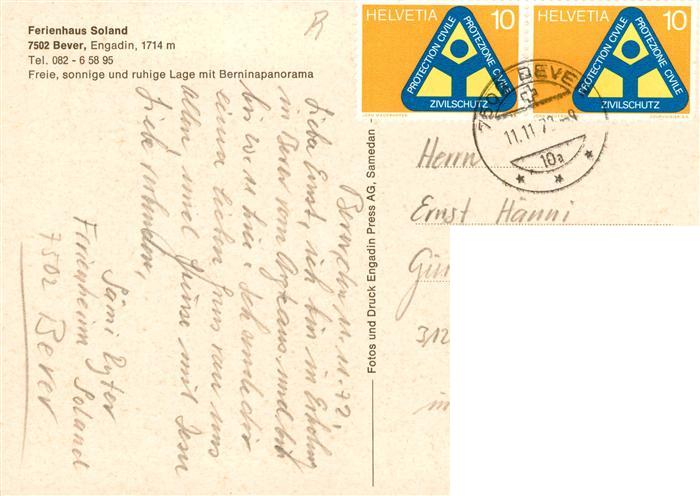 Ferienhaus Soland
7502 Bever, Engadin, 1714 m
Tel. 082 - 6 58 95
Freie, sonnige und ruhige Lage mit Berninapanorama
R
HELVETIA 10
PROTECTION CIVILE
PROTEZIONE CIVILE
ZIVILSCHUTZ
HELVETIA 10
PROTECTION CIVILE
PROTEZIONE CIVILE
ZIVILSCHUTZ
7502 BEVER
11.11.72
10a
Herrn
Ernst Hänni
Gü
312
in
Fotos und Druck Engadin Press AG, Samedan
Bever, den 11.11.72.
Liebe Ernst, ich bin in
in Bever vom und bit
bis hie. Ich
einen lieben von uns
allen und mit Jesu
Liebe verbunden,
Sämi Ryter
Ferienheim Soland
7502 Bever